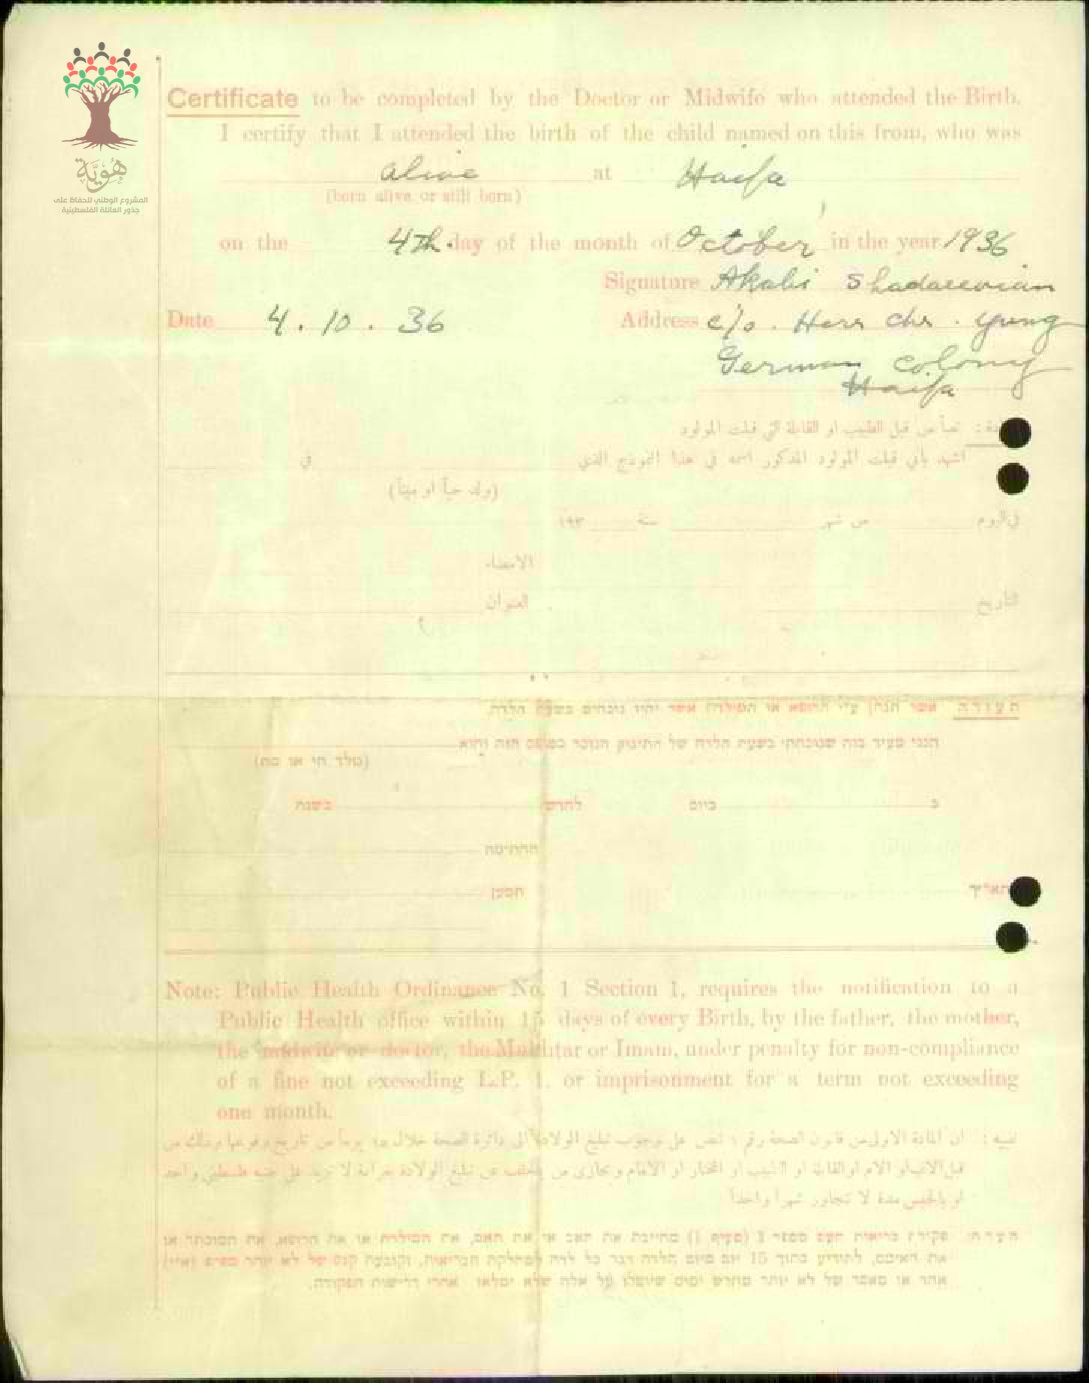 هُوِيَّة
المشروع الوطني للحفاظ على
جذور العائلة الفلسطينية
Certificate to be completed by the Doctor or Midwife who attended the Birth.
I certify that I attended the birth of the child named on this from, who was
alive at Haifa
(born alive or still born)
on the 4th. day of the month of October in the year 1936
Signature Akabi
Date 4. 10. 36 Address c/o. Herr Chr. Yung
German Colony
Haifa
تعبأ من قبل الطبيب او القابلة التي قبلت المولود
اشهد بأني قبلت المولود المذكور اسمه في هذا النموذج الذي في
(ولد حياً او ميتاً)
في اليوم من شهر سنة ١٩٣
الامضاء
التأريخ العنوان
תעודה אשר תנתן ע״י הרופא או המילדת אשר יהיו נוכחים בשעת הלדה.
הנני מעיד בזה שנוכחתי בשעת הלדה של התינוק הנזכר בטופס הזה והוא
(נולד חי או מת)
ב ביום לחדש בשנת
החתימה
תאריך המען
Note: Public Health Ordinance No. 1 Section 1, requires the notification to a
Public Health office within 15 days of every Birth, by the father, the mother,
the midwife or doctor, the Mukhtar or Imam, under penalty for non-compliance
of a fine not exceeding L.P. 1. or imprisonment for a term not exceeding
one month.
تنبيه: ان المادة الاولى من قانون الصحة رقم ١ تنص على وجوب تبليغ الولادة الى دائرة الصحة خلال ١٥ يوماً من تاريخ وقوعها وذلك من
قبل الاب او الام او القابلة او الطبيب او المختار او الامام ويجازى من يتخلف عن تبليغ الولادة بغرامة لا تزيد على جنيه فلسطيني واحد
او بالحبس مدة لا تتجاوز شهراً واحداً
הערה: פקודת בריאות העם מספר 1 (סעיף 1) מחייבת את האב או את האם, את המילדת או את הרופא, את המוכתר או
את האימם, להודיע בתוך 15 יום מיום הלדה דבר כל לדה למחלקת הבריאות, וקובעת קנס של לא יותר מפונט (א״י)
אחד או מאסר של לא יותר מחדש ימים שיוטלו על אלה שלא ימלאו אחרי דרישות הפקודה.